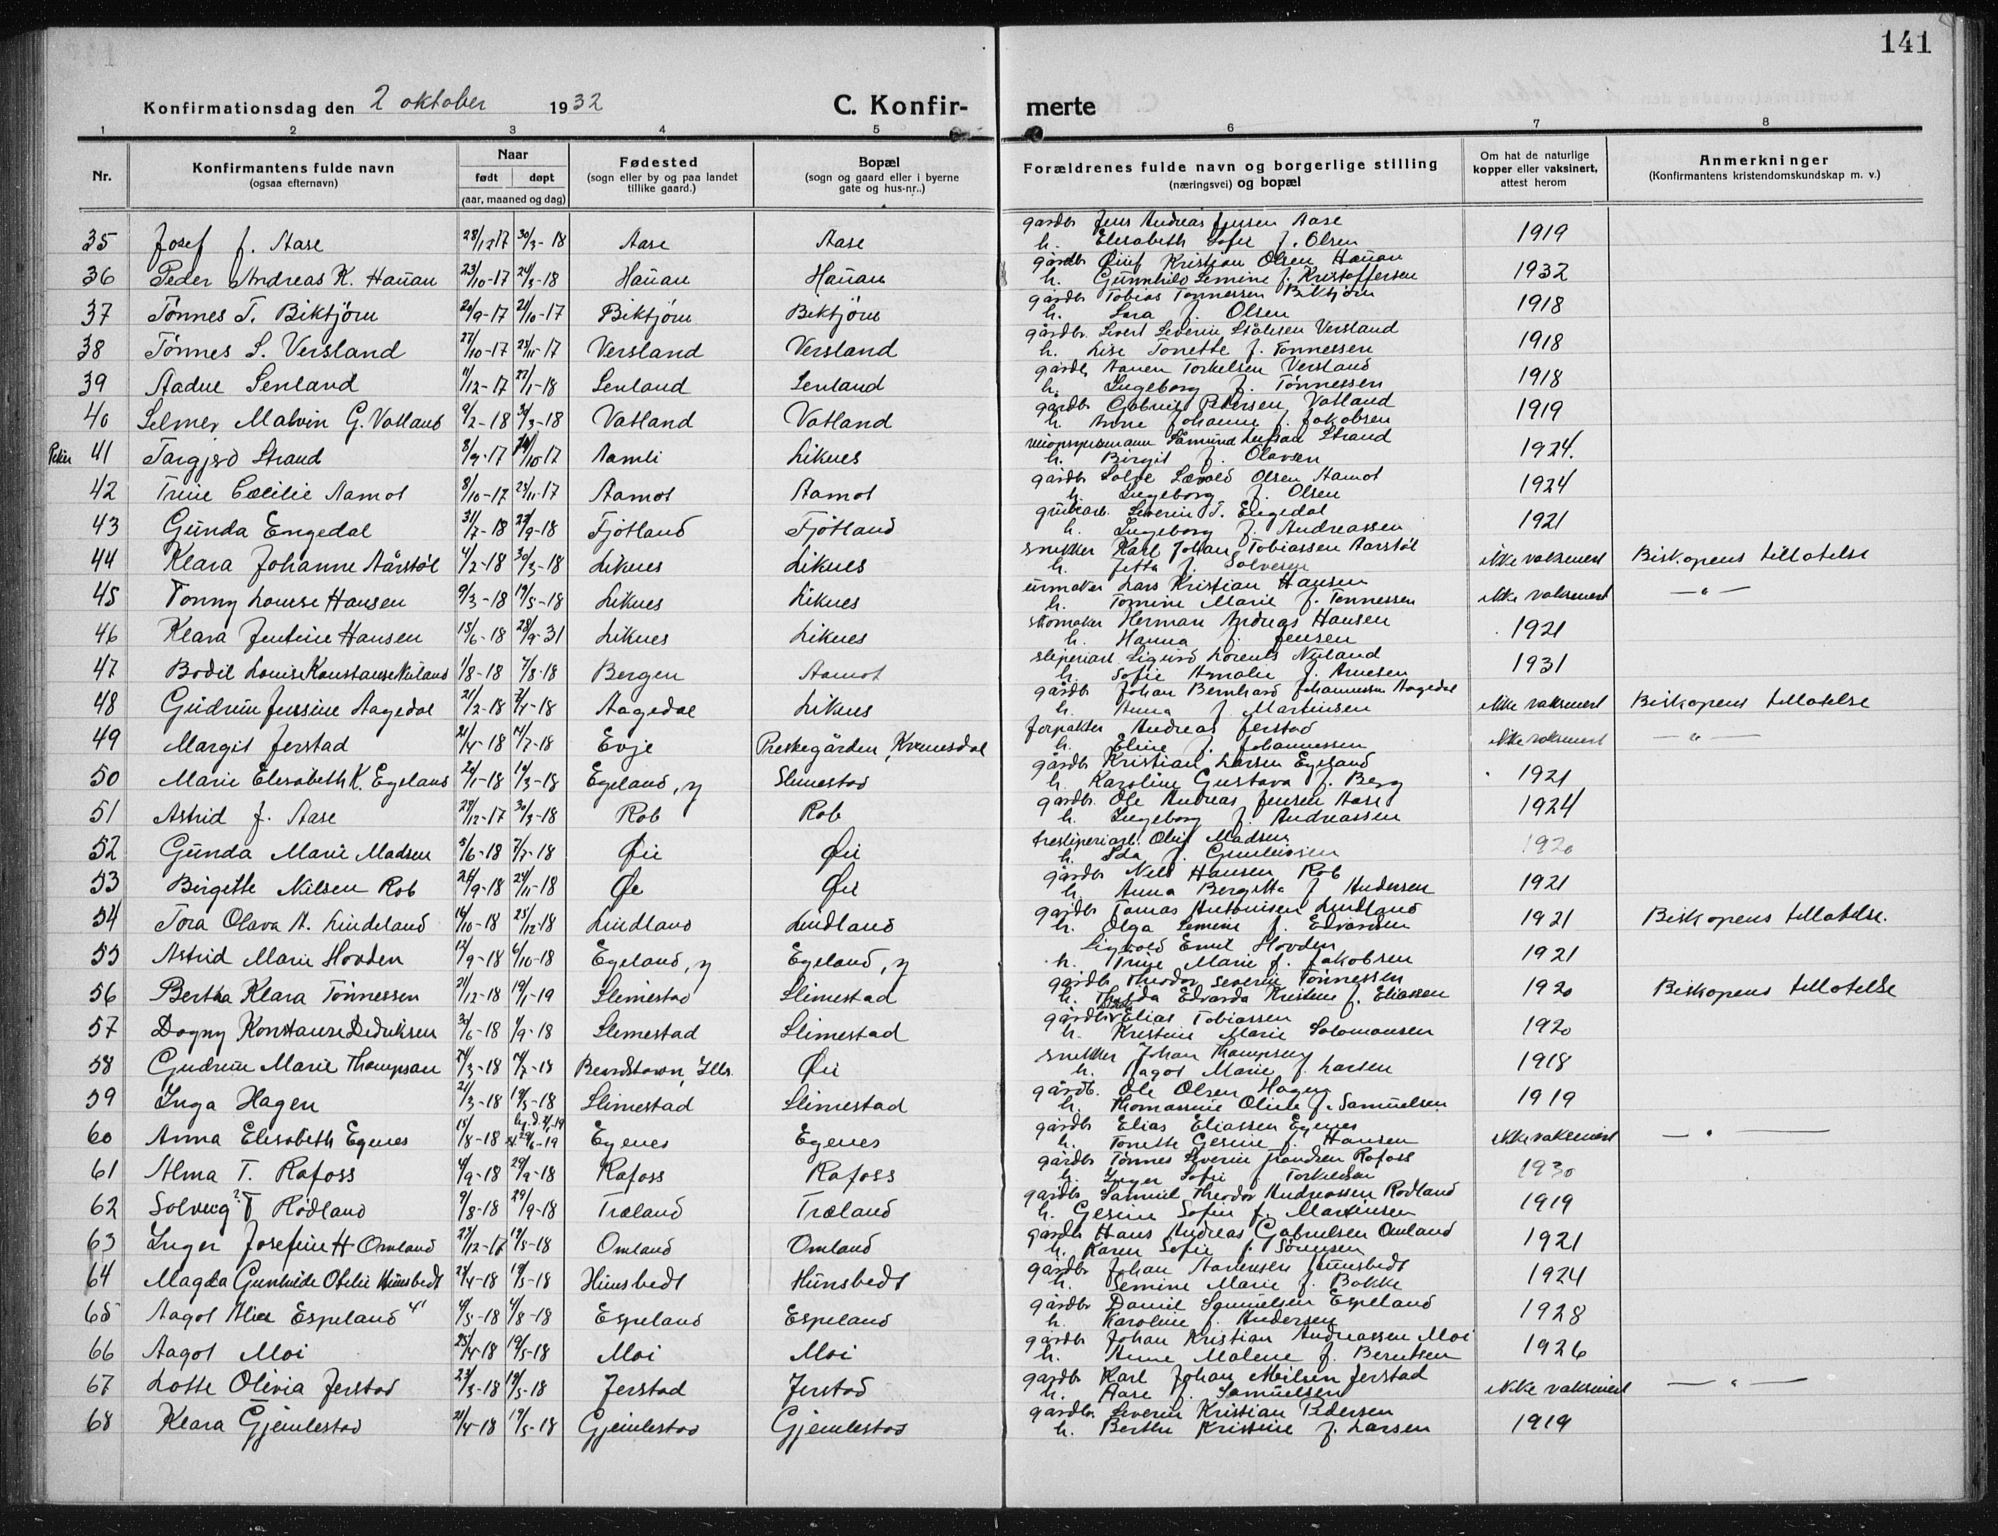 141
Konfirmationsdag den 2 oktober 1932 C. Konfirmerte
1 2 3 4 5 6 7 8
Nr. Konfirmantens fulde navn (ogsaa efternavn) Naar født døpt (aar, maaned og dag) Fødested (sogn eller by og paa landet tillike gaard.) Bopæl (sogn og gaard eller i byerne gate og hus-nr..) Forældrenes fulde navn og borgerlige stilling (næringsvei) og bopæl Om hat de naturlige kopper eller vaksinert, attest herom Anmerkninger (Konfirmantens kristendomskundskap m. v.)
35 Josef J. Aase 28/12 17 30/3-18 Aase Aase gårdbr Jens Andreas Jensen Aase 1919
h. Elisabeth Sofie f. Olsen
36 Peder Andreas K. Hauan 23/10-17 24/3-18 Hauan Hauan gårdbr Oluf Kristian Olsen Hauan 1932
h. Gunnhild Semine f. Kristoffersen
37 Tønnes T. Biktjørn 20/9-17 21/10-17 Biktjørn Biktjørn gårdbr Tobias Tønnessen Biktjørn 1918
h. Sara f. Olsen
38 Tønnes S. Versland 27/10-17 25/11-17 Versland Versland gårdbr. Sivert Severin Ståhlsen Versland 1918
h. Lise Tonette f. Tønnessen
39 Aadne Senland 11/12-17 27/1-18 Senland Senland gårdb. Aanen Torkelsen Versland 1918
h. Ingeborg f. Tønnessen
40 Selmer Malvin G. Vatland 9/2-18 30/3-18 Vatland Vatland gårdbr Gabriel Pedersen Vatland 1919
h. Anne Johanne f. Jakobsen
41 Targjerd Strand 8/9-17 /10-17 Aamli Liknes Såmund Strand 1924.
h. Birgit f. Olavsen
42 Trine Cecilie Aamot 8/10-17 25/11-17 Aamot Aamot gårdbr Solve Sævald Olsen Aamot 1924
h. Ingeborg f. Olsen
43 Gunda Engedal 31/7-18 22/9-18 Fjotland Fjotland grubearb. Severin T. Engedal 1921
h. Ingeborg f. Andreassen
44 Klara Johanne Aårstøl 4/2-18 30/3-18 Liknes Liknes snekker Karl Johan Tobiassen Aarstøl ikke vaksinert Biskopens tillatelse
h. Jetta f. Solvesen
45 Tonny Louise Hansen 9/3-18 19/5-18 Liknes Liknes urmaker Lars Kristian Hansen ikke vaksinert — " —
h. Tomine Marie f. Tønnessen
46 Klara Jentine Hansen 15/6-18 28/9-31 Liknes Liknes skomaker Herman Andreas Hansen 1921
h. Hanna f. Jensen
47 Bodil Louise Konstanse Nuland 1/8-18 7/8-18 Bergen Aamot sliperiarb. Sigurd Lorents Nuland 1931
h. Sofie Amalie f. Arnesen
48 Gudrun Jensine Aagedal 21/2-18 7/4-18 Aagedal Liknes gårdbr Johan Bernhard Johannessen Aagedal ikke vaksinert Biskopens tillatelse
h. Anna f Martinsen
49 Margit Jerstad 21/4-18 14/7-18 Evje Prestegården, Kvinesdal forpakter Andreas Jerstad ikke vaksinert — " —
h. Eline f. Johannessen
50 Marie Elisabeth K. Egeland 24/1-18 14/3-18 Egeland, y Slimestad gårdbr Kristian Larsen Egeland 1921
h. Karoline Gustava f. Berg
51 Astrid J. Aase 28/12-17 30/3-18 Rob Rob gårdbr. Ole Andreas Jensen Aase 1924
h. Ingeborg f. Andreassen
52 Gunda Marie Madsen 3/6-18 7/7-18 Øie Øie tresliperiarb. Oluf Madsen 1920
h. Ida f.
53 Birgitte Nilsen Rob 26/9-18 24/11-18 Øie Øie gårdbr Nils Hansen Rob 1921
h. Anna Bergitta f Andersen
54 Tora Olava A. Lindeland 14/10-18 25/12-18 Lindland Lindland gårdbr Tomas Antonisen Lindland 1921 Biskopens tillatelse.
h. Olga Semine f. Edvardsen
55 Astrid Marie Hovden 12/9-18 6/10-18 Egeland, y Egeland, y Sigvald Emil Hovden 1921
h. Trine Marie f. Jakobsen
56 Bertha Klara Tønnessen 21/12-18 19/1-19 Slimestad Slimestad gårdbr Theodor Severin Tønnessen 1920 Biskopens tillatelse
h. Edvarda Kristine f. Eliassen
57 Dagny Konstanse Didriksen 30/6-18 1/9-18 Slimestad Slimestad gårdbr Elias Tobiassen 1920
h. Kristine Marie Solomonsen
58 Gudrun Marie Thompson 24/3-18 14/7-18 Beardstown, Ills. Øie snekker Johan Thompson 1918
h. Aagot Marie f. Larsen
59 Inga Hagen 21/3-18 19/5-18 Slimestad Slimestad gårdb. Ole Olsen Hagen 1919
h. Thomassine Olivie f. Samuelsen
60 Anna Elisabeth Egenes 15/8-18 29/6-19 Egenes Egenes gårdbr Elias Eliassen Egenes ikke vaksinert — " —
h. Tonette Gesine f. Hansen
61 Alma T. Rafoss 4/9-18 29/9-18 Rafoss Rafoss gårdbr Tønnes Severin Trondsen Rafoss 1930
h. Inger Sofie f Torkildsen
62 Solveig T Rødland 9/8-18 29/9-18 Træland Træland gårdbr Samuel Theodor Andreassen Rødland 1919
h. Gesine Sofie f. Martinsen
63 Inger Josefine H Omland 25/12-17 19/5-18 Omland Omland gårdbr Hans Andreas Gabrielsen Omland 1921
h. Karen Sofie f. Sørensen
64 Magda Gunhilde Otelie Hunsbedt 28/4-18 19/5-18 Hunsbedt Hunsbedt gårdbr Johan Aanensen Hunsbedt 1924
h. Semine Marie f. Bakke
65 Aagot Alice Espeland 4/5-18 4/8-18 Espeland Espeland gårdbr Daniel Samuelsen Espeland 1928
h. Karoline f. Andersen
66 Aagot Moi 25/4-18 19/5-18 Moi Moi gårdbr Johan Kristian Andreassen Moi 1926
h. Anne Malene f. Berntsen
67 Lotte Olivia Jerstad 23/3-18 19/5-18 Jerstad Jerstad gårdbr Karl Johan Jerstad ikke vaksinert — " —
h. Aase f. Samuelsen
68 Klara Gjemlestad 21/4-18 19/5-18 Gjemlestad Gjemlestad gårdbr. Severin Kristian Pedersen 1919
h. Berthe Kristine f. Larsen